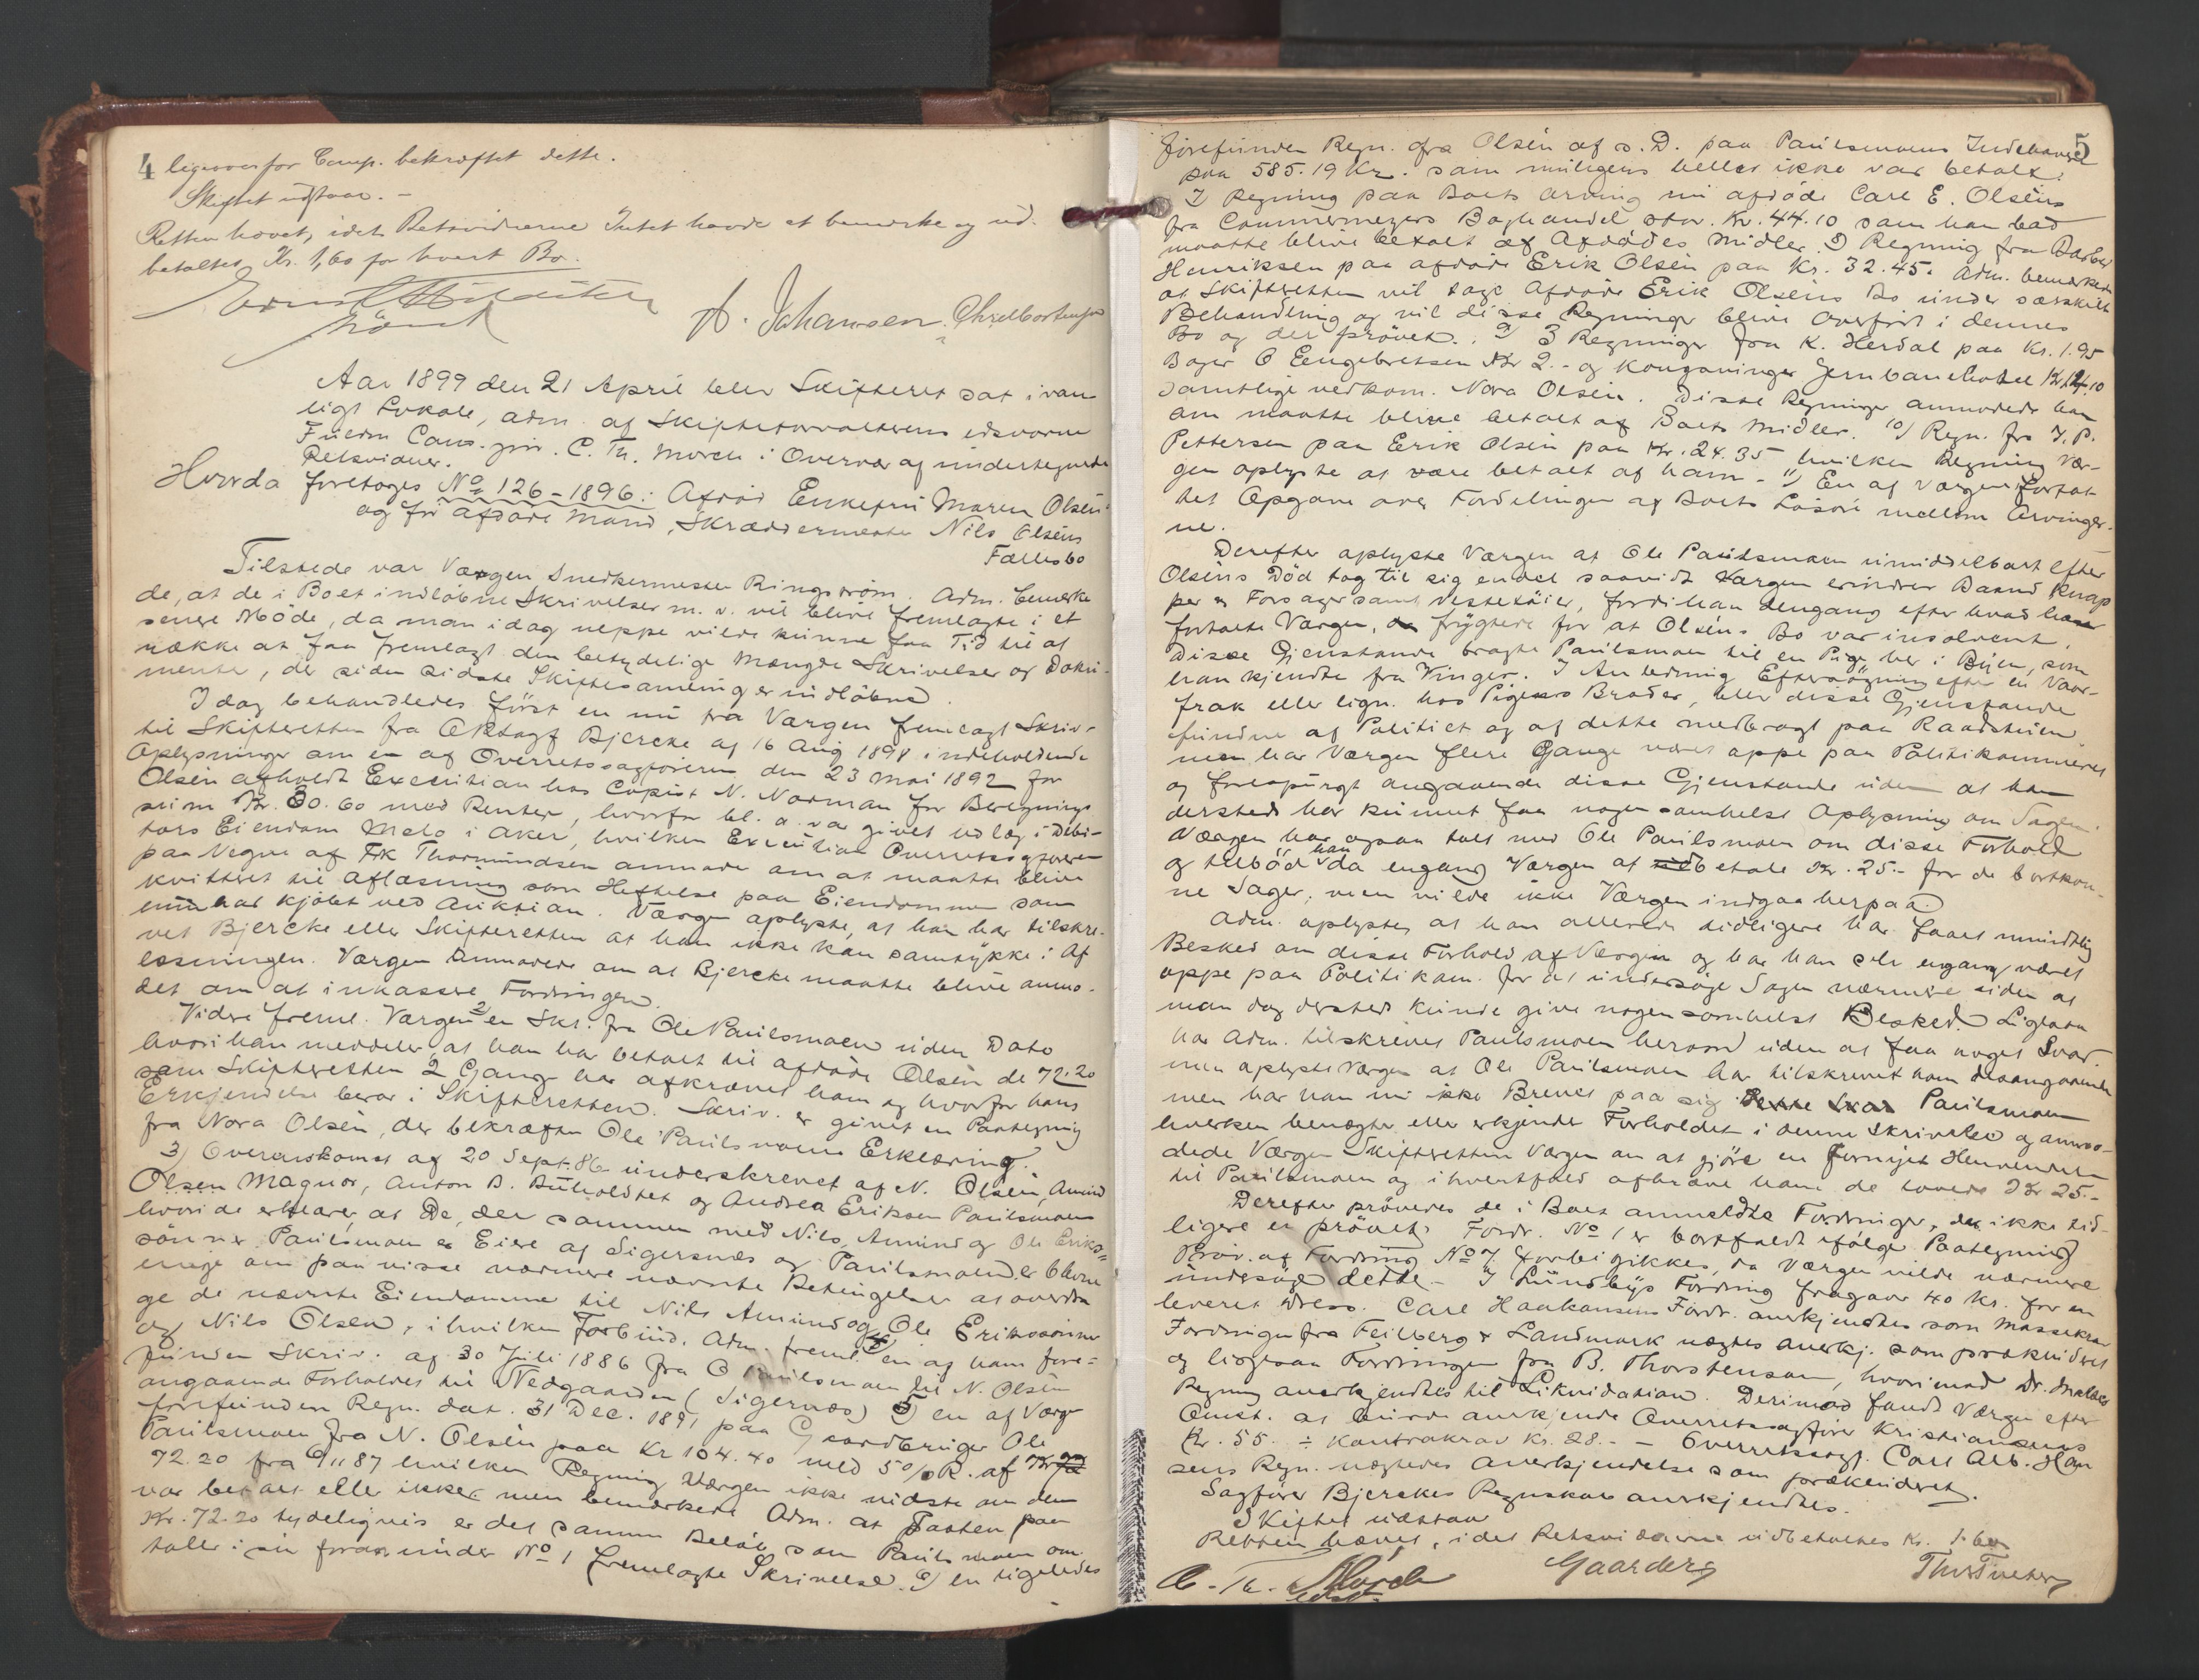 4 ligeoverfor Comp. bekræftet dette.
Skiftet udstaar. -
Retten hævet, idet Retsvidnerne Intet havde at bemærke og ud-
betaltes Kr. 1,60 for hvert Bo.
A. Johansen.
Aar 1899 den 21 April blev Skifteret sat i van
ligt Lokale, adm. af Skifteforvalterens edsvorne
Fuldm Cand. jur. C. Th. Morch i Overvær af undertegnede
Retsvidner.
Hvorda foretoges No 126-1896: Afdød Enkefru Maren Olsens
og før afdøde Mand, Skræddermester Nils Olsens
Fællesbo
Tilstede var Værgen Snedkermester Ringstrøm. Adm. bemærke
de, at de i Boet indløbne Skrivelser m. v. vil blive fremlagte i et
senere Møde, da man idag neppe vilde kunne faa Tid til at
række at faa fremlagt den betydelige Mængde Skrivelser og Doku-
menter, der siden sidste Skiftesamling er indløbne.
I dag behandledes først en nu fra Værgen fremlagt Skriv-
til Skifteretten fra O.Rsagf Bjercke af 16 Aug 1898 indeholdende
Oplysninger om en af Overretssagføreren den 23 Mai 1892 for
Olsen afholdt Execution hos Copist N. Norman for Beregnings
sum Kr. 80.60 med Renter, hvorfor bl. a. var givet udlæg i Debi-
tors Eiendom Melo i Aker, hvilken Execution Overretssagføreren
paa Vegne af Frk Thormundsen anmode om at maatte blive
kvitteret til Aflæsning som Heftelse paa Eiendommen som
hun har kjøbt ved Auktion. Værgen oplyste, at han har tilskre-
vet Bjercke eller Skifteretten at han ikke kan samtykke i Af
læsningen. Værgen anmodede om at Bjercke maatte blive anmo-
det om at inkassere Fordringen.
Videre freml. Værgen 2) en Skr. fra Ole Paulsmoen uden Dato
hvori han meddeler, at han har betalt til afdøde Olsen de 72.20
som Skifteretten 2 Gang har afkrævet ham og hvorfor hans
Erkjendelse beror i Skifteretten. Skriv. er givet en Paategning
fra Nora Olsen, der bekræfter Ole Paulsmoens Erklæring.
3) Overenskomst af 20 Sept. 86 underskrevet af N. Olsen, Amund
Olsen Magnor, Anton B. Buholdtet og Andrea Eriksen Paulsmoen
hvori de erklærer, at De, der sammen med Nils, Amund og Ole Eriks-
sønner Paulsmoen er Eiere af Sigersnæs og Paulsmoen er blevne
enige om paa visse nærmere nævnte Betingelser at overdra
ge de nævnte Eiendomme til Nils Amund og Ole Erikssønner
og Nils Olsen, i hvilken Forbind. Adm. freml. 4) en af ham fore-
funden Skriv. af 30 Juli 1886 fra O Paulsmoen til N. Olsen
angaaende Forholdet til Nedgaarden (Sigernæs) 5) en af Værge
forefunden Regn. dat. 31 Dec. 1891 paa Gaardbruger Ole
Paulsmoen fra N. Olsen paa Kr 104.40 med 5 % R. af Kr
72.20 fra 9/11 87 hvilken Regning Værgen ikke vidste om den
var betalt eller ikke, men bemærkede Adm. at Posten paa
Kr. 72.20 tydeligvis er det samme Beløb som Paulsmoen om
taler i sin foran under No 1 fremlagte Skrivelse. 6) en ligeledes
5
forefunden Regn. fra Olsen af s. D. paa Paulsmoens Indehaver
paa 585.19 Kr. som muligens heller ikke var betalt.
7 Regning paa Boets arving nu afdøde Carl E. Olsens
fra Cammermeyers Boghandel stor Kr. 44.10 som han bad
maatte blive betalt af Afdødes Midler. 8) Regning fra Barber
Henriksen paa afdøde Erik Olsen paa Kr. 32.45. Adm. bemærkede
at Skifteretten vil tage Afdøde Erik Olsens Bo under særskilt
Behandling og vil disse Regninger blive overført i dennes
Bo og der prøvet. 9) 3 Regninger fra K. Herdal paa Kr. 1.95
Bager O Engebretsen Kr 2.- og Kongsvinger Jernbanehotel Kr 14.10
samtlige vedkom. Nora Olsen. Disse Regninger anmodede han
om maatte blive betalt af Boets Midler. 10) Regn. fra J. P.
Pettersen paa Erik Olsen paa Kr. 24.35 hvilken Regning Vær-
gen oplyste at være betalt af ham. 11) En af Værgen forfat-
tet Opgave over Fordelingen af Boets Løsøre mellem Arvinger-
ne.
Derefter oplyste Værgen at Ole Paulsmoen umiddelbart efter
Olsens Død tog til sig endel saavidt Værgen erindrer Baand Knap
per og Forsager samt Vestetøier, fordi han dengang efter hvad han
fortalte Værgen, frygtede for at Olsens Bo var insolvent.
Disse Gjenstande bragte Paulsmoen til en Pige her i Byen, som
han kjendte fra Vinger. I Anledning Eftersøgning efter en Vaar-
frak eller lign. hos Pigens Broder, blev disse Gjenstande
fundne af Politiet og af dette medbragt paa Raadstuen
men har Værgen flere Gange været oppe paa Politikammeret
og forespurgt angaaende disse Gjenstande uden at han
dersteds har kunnet faa nogen somhelst Oplysning om Sagen.
Værgen har ogsaa talt med Ole Paulsmoen om disse Forhold
og tilbød han da engang Værgen at betale Kr. 25.- for de bortkom-
ne Sager, men vilde ikke Værgen indgaa herpaa.
Adm. oplyste, at han allerede tidligere har faaet mundtlig
Besked om disse Forhold af Værgen og har han selv engang været
oppe paa Politikam. for at undersøge Sagen nærmere uden at
man dog dersteds kunde give nogensomhelst Besked. Ligesaa
har Adm. tilskrevet Paulsmoen herom uden at faa noget Svar,
men oplyste Værgen at Ole Paulsmoen har tilskrevet ham desangaaende
men har han nu ikke Brevet paa sig. Paulsmoen
hverken benægter eller erkjender Forholdet i denne Skrivelse og anmo-
dede Værgen Skifteretten Værgen om at gjøre en fornyet Henvendelse
til Paulsmoen og ihvertfald afkræve ham de lovede Kr 25.-
Derefter prøvedes de i Boet anmeldte Fordringer, der ikke tid-
ligere er prøvet. Fordr. No 1 er bortfaldt ifølge Paategning
Prøv. af Fordring No 7 forbigikkes, da Værgen vilde nærmere
undersøge dette. - I Lundbys Fordring fragaar 40 Kr. for en
leveret Dress. Carl Haakonsens Fordr. anerkjendtes som Massekrav
Fordringer fra Feilberg & Landmark nægtes anerkj. som prækluderet
og ligesaa Fordringen fra B. Thorstensen, hvorimod Dr. Malthes
Regning anerkjendtes til Likvidation. Derimod fandt Værgen efter
Omst. at burde anerkjende Overretssagfører Kristiansens
Kr. 55. ÷ Kontrakrav Kr. 28.- - Overretssagf. Carl Alb. Han
sens Regn. nægtedes Anerkjendelse som prækluderet.
Sagfører Bjerckes Regnskab anerkjendtes.
Skiftet udstaar
Retten hævet, idet Retsvidnerne udbetaltes Kr. 1.60
C. Th. Morch
edsv.
Gaarder